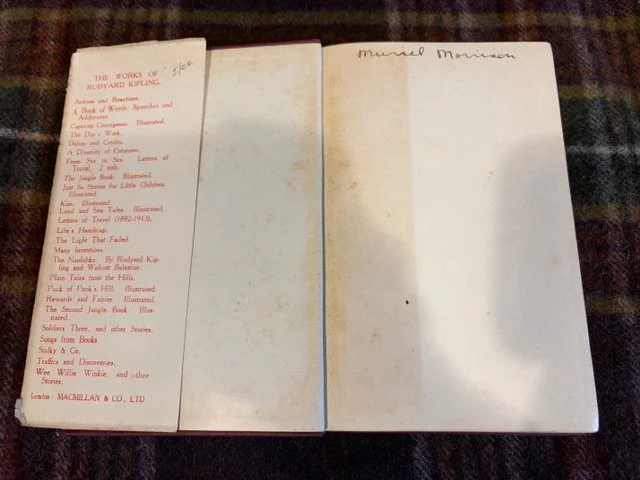 5/00
THE WORKS OF
RUDYARD KIPLING.
Actions and Reactions.
A Book of Words: Speeches and
Addresses.
Captains Courageous. Illustrated.
The Day's Work.
Debits and Credits.
A Diversity of Creatures.
From Sea to Sea. Letters of
Travel. 2 vols.
The Jungle Book. Illustrated.
Just So Stories for Little Children.
Illustrated.
Kim. Illustrated.
Land and Sea Tales. Illustrated.
Letters of Travel (1892-1913).
Life's Handicap.
The Light That Failed.
Many Inventions.
The Naulahka. By Rudyard Kip-
ling and Wolcott Balestier.
Plain Tales from the Hills.
Puck of Pook's Hill. Illustrated.
Rewards and Fairies. Illustrated.
The Second Jungle Book. Illus-
trated.
Soldiers Three, and other Stories.
Songs from Books.
Stalky & Co.
Traffics and Discoveries.
Wee Willie Winkie, and other
Stories.
London: MACMILLAN & CO., LTD
Muriel Morrison